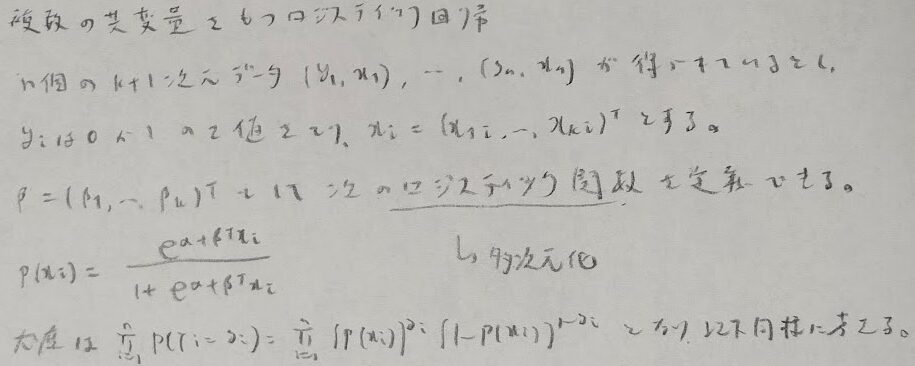 複数の共変量をもつロジスティック回帰
n個のk+1次元データ (y₁, x₁), …, (yₙ, xₙ) が得られているとし、
yᵢは0か1の2値をとり、xᵢ = (x₁ᵢ, …, xₖᵢ)ᵀ とする。
β = (β₁, …, βₖ)ᵀ として 次のロジスティック関数を定義できる。
p(xᵢ) = e^{α+βᵀxᵢ} / (1 + e^{α+βᵀxᵢ})
↳ 多次元化
尤度は ∏ᵢ₌₁ⁿ P(Yᵢ = yᵢ) = ∏ᵢ₌₁ⁿ {p(xᵢ)}^{yᵢ} {1-p(xᵢ)}^{1-yᵢ} となり、以下同様に考える。